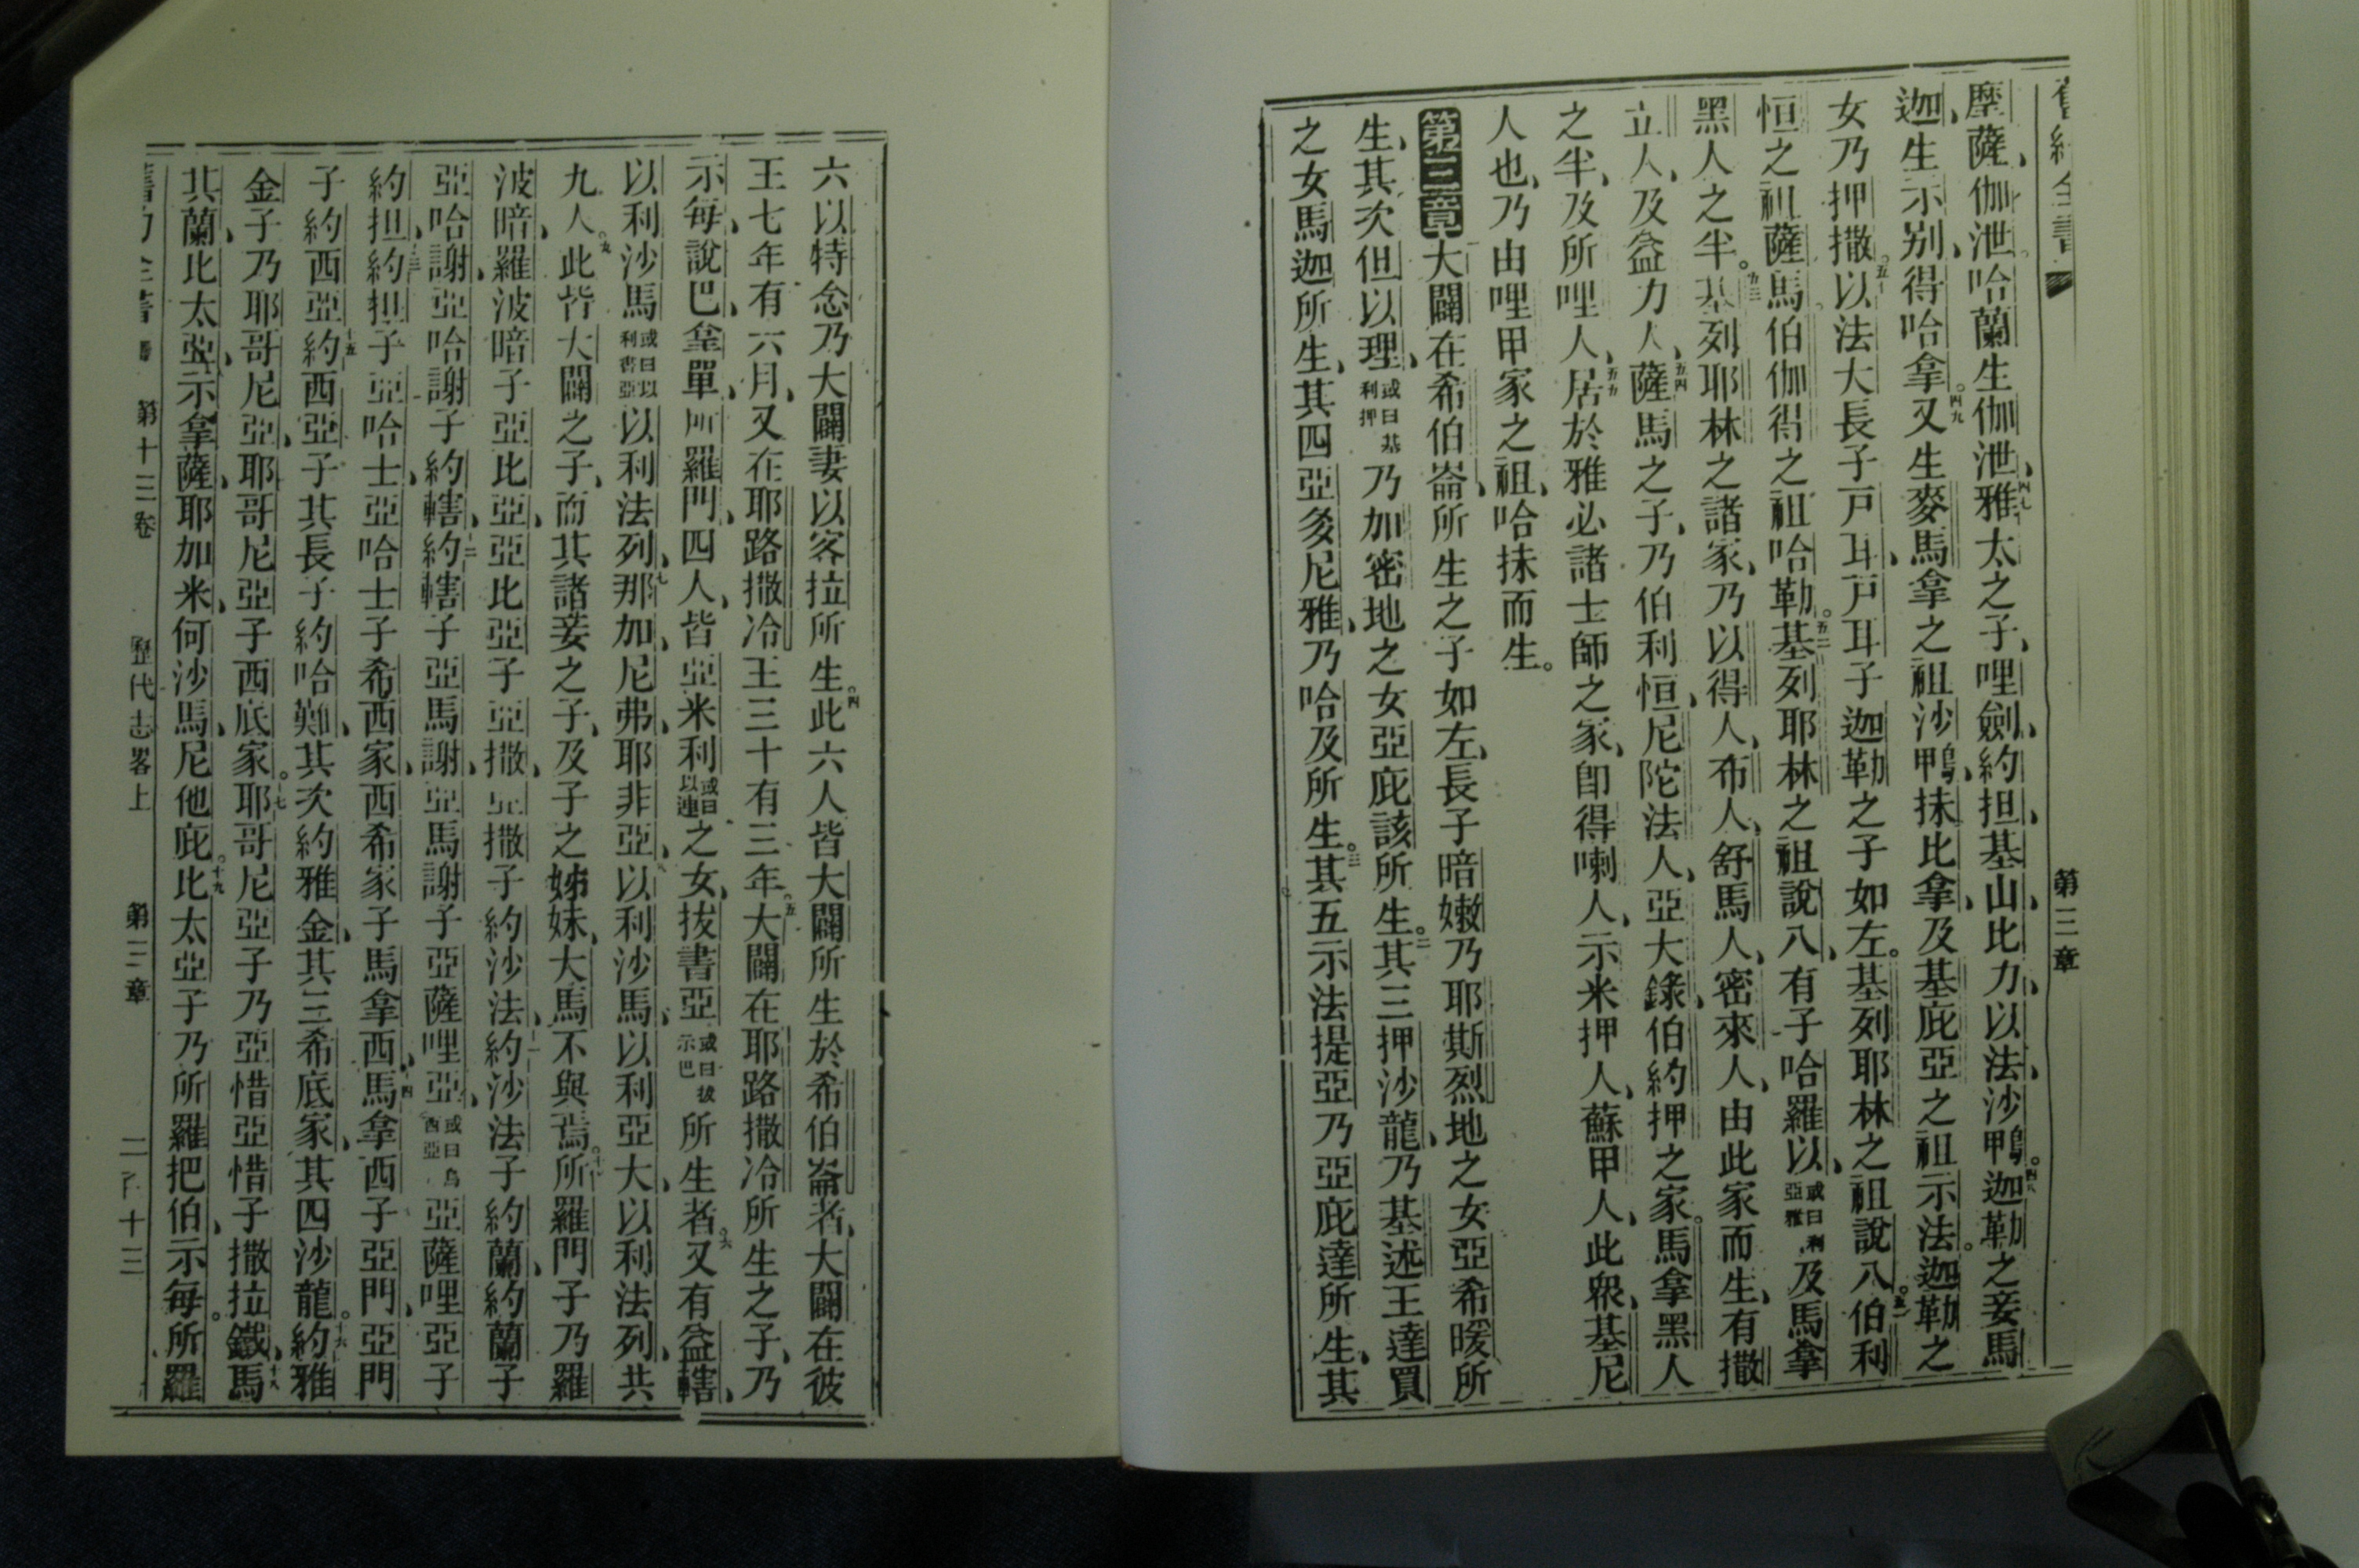 舊約全書
第三章
摩薩伽泄哈蘭生伽泄四七雅太之子哩劍約担基山比力以法沙鴨四八迦勒之妾馬
迦生示别得哈拿四九又生麥馬拿之祖沙鴨抹比拿及基庇亞之祖示法迦勒之
女乃押撒五十以法大長子戸耳戸耳子迦勒之子如左基列耶林之祖說八五一伯利
恒之祖薩馬伯伽得之祖哈勒五二基列耶林之祖說八有子哈羅以或曰利亞雅及馬拿
黑人之半五三基列耶林之諸家乃以得人布人舒馬人密來人由此家而生有撒
立人及益力人五四薩馬之子乃伯利恒尼陀法人亞大錄伯約押之家馬拿黑人
之半及所哩人五五居於雅必諸士師之家即得喇人示米押人蘇甲人此衆基尼
人也乃由哩甲家之祖哈抹而生
第三章大闢在希伯崙所生之子如左長子暗嫩乃耶斯烈地之女亞希暖所
生其次但以理或曰基利押乃加密地之女亞庇該所生二其三押沙龍乃基述王達買
之女馬迦所生其四亞多尼雅乃哈及所生三其五示法提亞乃亞庇達所生其
六以特念乃大闢妻以客拉所生四此六人皆大闢所生於希伯崙者大闢在彼
王七年有六月又在耶路撒冷王三十有三年五大闢在耶路撒冷所生之子乃
示每說巴拿單所羅門四人皆亞米利或曰以連之女拔書亞或曰拔示巴所生者六又有益轄
以利沙馬或曰以利書亞以利法列七那加尼弗耶非亞八以利沙馬以利亞大以利法列共
九人九此皆大闢之子而其諸妾之子及子之姊妹大馬不與焉十所羅門子乃羅
波暗羅波暗子亞比亞亞比亞子亞撒亞撒子約沙法十一約沙法子約蘭約蘭子
亞哈謝亞哈謝子約轄十二約轄子亞馬謝亞馬謝子亞薩哩亞或曰烏西亞亞薩哩亞子
約担十三約担子亞哈士亞哈士子希西家西希家子馬拿西十四馬拿西子亞門亞門
子約西亞十五約西亞子其長子約哈難其次約雅金其三希底家其四沙龍十六約雅
金子乃耶哥尼亞耶哥尼亞子西底家十七耶哥尼亞子乃亞惜亞惜子撒拉鐵十八馬
其蘭比太亞示拿薩耶加米何沙馬尼他庇十九比太亞子乃所羅把伯示每所羅
第十三卷 歷代志畧上 第三章 二千十三